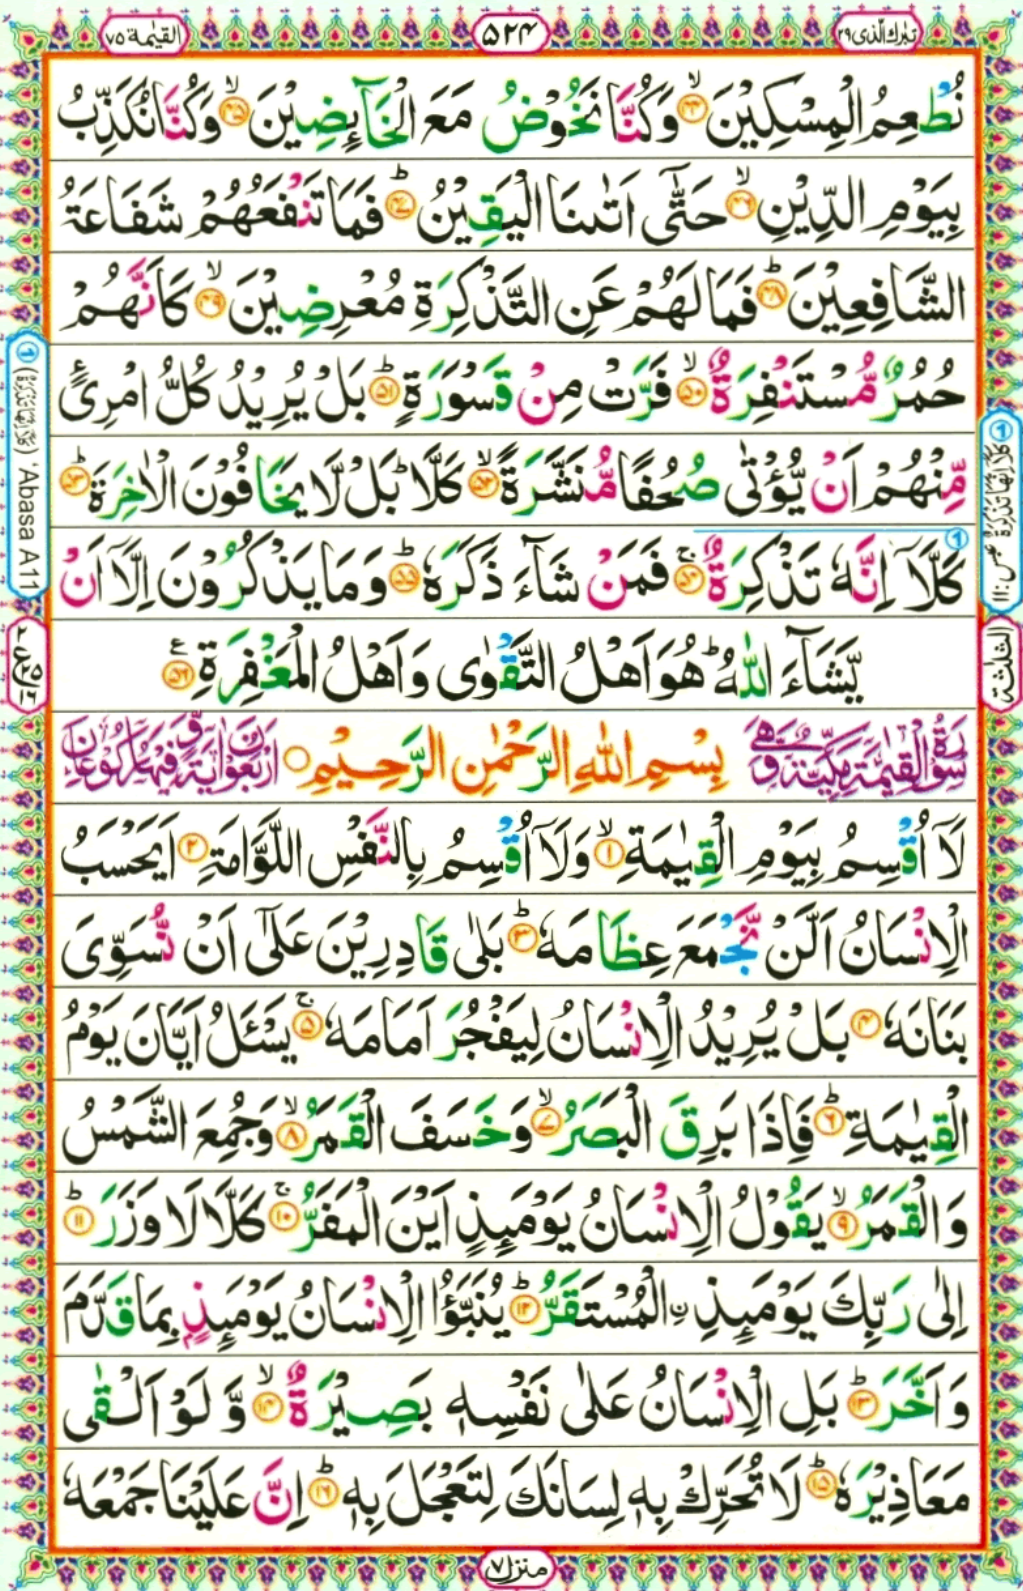 تبٰرك الّذی ۲۹
۵۲۴
القیٰمة ۷۵
نُطْعِمُ الْمِسْكِیْنَ ۙ﴿۴۴﴾ وَكُنَّا نَخُوْضُ مَعَ الْخَآىِٕضِیْنَ ۙ﴿۴۵﴾ وَكُنَّا نُكَذِّبُ
بِیَوْمِ الدِّیْنِ ۙ﴿۴۶﴾ حَتّٰۤی اَتٰىنَا الْیَقِیْنُ ؕ﴿۴۷﴾ فَمَا تَنْفَعُهُمْ شَفَاعَةُ
الشّٰفِعِیْنَ ؕ﴿۴۸﴾ فَمَا لَهُمْ عَنِ التَّذْكِرَةِ مُعْرِضِیْنَ ۙ﴿۴۹﴾ كَاَنَّهُمْ
حُمُرٌ مُّسْتَنْفِرَةٌ ۙ﴿۵۰﴾ فَرَّتْ مِنْ قَسْوَرَةٍ ؕ﴿۵۱﴾ بَلْ یُرِیْدُ كُلُّ امْرِئٍ
مِّنْهُمْ اَنْ یُّؤْتٰی صُحُفًا مُّنَشَّرَةً ۙ﴿۵۲﴾ كَلَّا ؕ بَلْ لَّا یَخَافُوْنَ الْاٰخِرَةَ ؕ﴿۵۳﴾
كَلَّاۤ اِنَّهٗ تَذْكِرَةٌ ۚ﴿۵۴﴾ فَمَنْ شَآءَ ذَكَرَهٗ ؕ﴿۵۵﴾ وَمَا یَذْكُرُوْنَ اِلَّاۤ اَنْ
یَّشَآءَ اللّٰهُ ؕ هُوَ اَهْلُ التَّقْوٰی وَاَهْلُ الْمَغْفِرَةِ ﴿۵۶﴾ ع
سُوْرَةُ الْقِیٰمَةِ مَكِّیَّةٌ وَّهِیَ بِسْمِ اللّٰهِ الرَّحْمٰنِ الرَّحِیْمِ ○ اَرْبَعُوْنَ اٰیَةً وَّفِیْهَا رُكُوْعَانِ
لَاۤ اُقْسِمُ بِیَوْمِ الْقِیٰمَةِ ۙ﴿۱﴾ وَلَاۤ اُقْسِمُ بِالنَّفْسِ اللَّوَّامَةِ ﴿۲﴾ اَیَحْسَبُ
الْاِنْسَانُ اَلَّنْ نَّجْمَعَ عِظَامَهٗ ؕ﴿۳﴾ بَلٰی قَادِرِیْنَ عَلٰۤی اَنْ نُّسَوِّیَ
بَنَانَهٗ ﴿۴﴾ بَلْ یُرِیْدُ الْاِنْسَانُ لِیَفْجُرَ اَمَامَهٗ ۚ﴿۵﴾ یَسْـَٔلُ اَیَّانَ یَوْمُ
الْقِیٰمَةِ ؕ﴿۶﴾ فَاِذَا بَرِقَ الْبَصَرُ ۙ﴿۷﴾ وَخَسَفَ الْقَمَرُ ۙ﴿۸﴾ وَجُمِعَ الشَّمْسُ
وَالْقَمَرُ ۙ﴿۹﴾ یَقُوْلُ الْاِنْسَانُ یَوْمَىِٕذٍ اَیْنَ الْمَفَرُّ ۚ﴿۱۰﴾ كَلَّا لَا وَزَرَ ؕ﴿۱۱﴾
اِلٰی رَبِّكَ یَوْمَىِٕذِ ِ۟الْمُسْتَقَرُّ ؕ﴿۱۲﴾ یُنَبَّؤُا الْاِنْسَانُ یَوْمَىِٕذٍۭ بِمَا قَدَّمَ
وَاَخَّرَ ؕ﴿۱۳﴾ بَلِ الْاِنْسَانُ عَلٰی نَفْسِهٖ بَصِیْرَةٌ ۙ﴿۱۴﴾ وَّلَوْ اَلْقٰی
مَعَاذِیْرَهٗ ؕ﴿۱۵﴾ لَا تُحَرِّكْ بِهٖ لِسَانَكَ لِتَعْجَلَ بِهٖ ؕ﴿۱۶﴾ اِنَّ عَلَیْنَا جَمْعَهٗ
① كَلَّاۤ اِنَّهَا تَذْكِرَةٌ عبس:۱۱
الثلٰثة
① (كَلَّاۤ اِنَّهَا تَذْكِرَةٌ) 'Abasa A11
منزل ۷